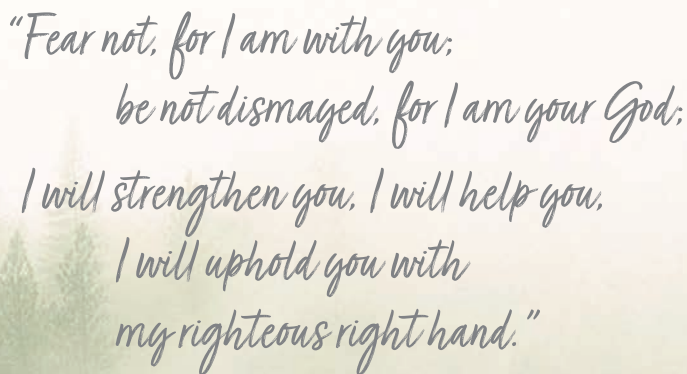 “Fear not, for I am with you;
be not dismayed, for I am your God;
I will strengthen you, I will help you,
I will uphold you with
my righteous right hand.”